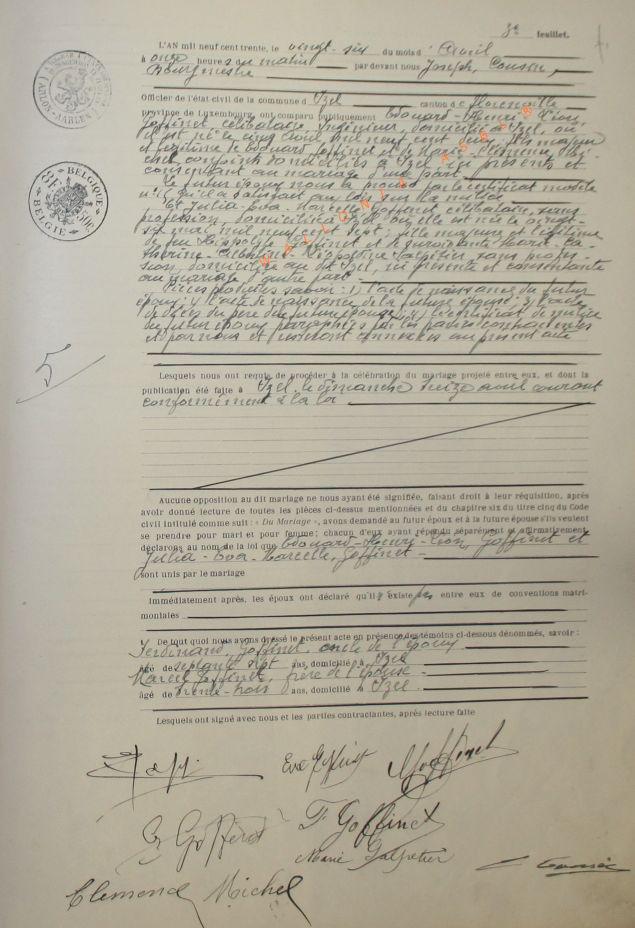 3e feuillet.
L'AN mil neuf cent trente, le vingt-six du mois d'Avril
à onze heures du matin par devant nous Joseph, Cousin,
Bourgmestre
Officier de l'état civil de la commune d'Izel canton de Florenville
province de Luxembourg, ont comparu publiquement Edouard-Henri-Léon,
Goffinet, célibataire, Ingénieur, domicilié à Izel, où
il est né le cinq Avril mil neuf cent deux, fils majeur
et légitime de Edouard, Goffinet et de Marie-Clémence, Mi-
chel, conjoints domiciliés à Izel ici présents et
consentant au mariage d'une part.
Le futur époux nous a produit par le certificat modèle
n° 15 qu'il a satisfait aux lois sur la milice
Et Julia-Eva-Marcelle, Goffinet célibataire, sans
profession, domiciliée à Izel où elle est née le vingt-
six mai mil neuf cent sept; fille majeure et légitime
de feu Hippolyte, Goffinet et de survivante Marie-Ca-
therine- Léopoldine, Salpétier, sans profes-
sion, domiciliée au dit Izel, ici présente et consentante
au mariage d'autre part.
Pièces produites savoir: 1) l'acte de naissance du futur
époux; 2) l'acte de naissance de la future épouse; 3) l'acte
de décès du père de la future épouse; 4) le certificat de milice
du futur époux paraphées par les parties contractantes
et par nous et resteront annexées au présent acte
Lesquels nous ont requis de procéder à la célébration du mariage projeté entre eux, et dont la
publication été faite à Izel, le dimanche treize avril courant
conformément à la loi
Aucune opposition au dit mariage ne nous ayant été signifiée, faisant droit à leur réquisition, après
avoir donné lecture de toutes les pièces ci-dessus mentionnées et du chapitre six du titre cinq du Code
civil intitulé comme suit: « Du Mariage », avons demandé au futur époux et à la future épouse s'ils veulent
se prendre pour mari et pour femme; chacun d'eux ayant répondu séparément et affirmativement,
déclarons au nom de la loi que Edouard-Henri-Léon, Goffinet et
Julia-Eva-Marcelle, Goffinet
sont unis par le mariage
Immédiatement après, les époux ont déclaré qu'il n'existe pas entre eux de conventions matri-
moniales
De tout quoi nous avons dressé le présent acte en présence des témoins ci-dessous dénommés, savoir:
Ferdinand, Goffinet, oncle de l'époux
âgé de septante sept ans, domicilié à Izel
Marcel Goffinet, frère de l'épouse
âgé de trente-trois ans, domicilié à Izel
Lesquels ont signé avec nous et les parties contractantes, après lecture faite
Eva Goffinet
E Goffinet
F. Goffinet
Marie Salpetier
Cousin
Clemence Michel
BELGIQUE
BELGIE
ARLON-AARLEN
5